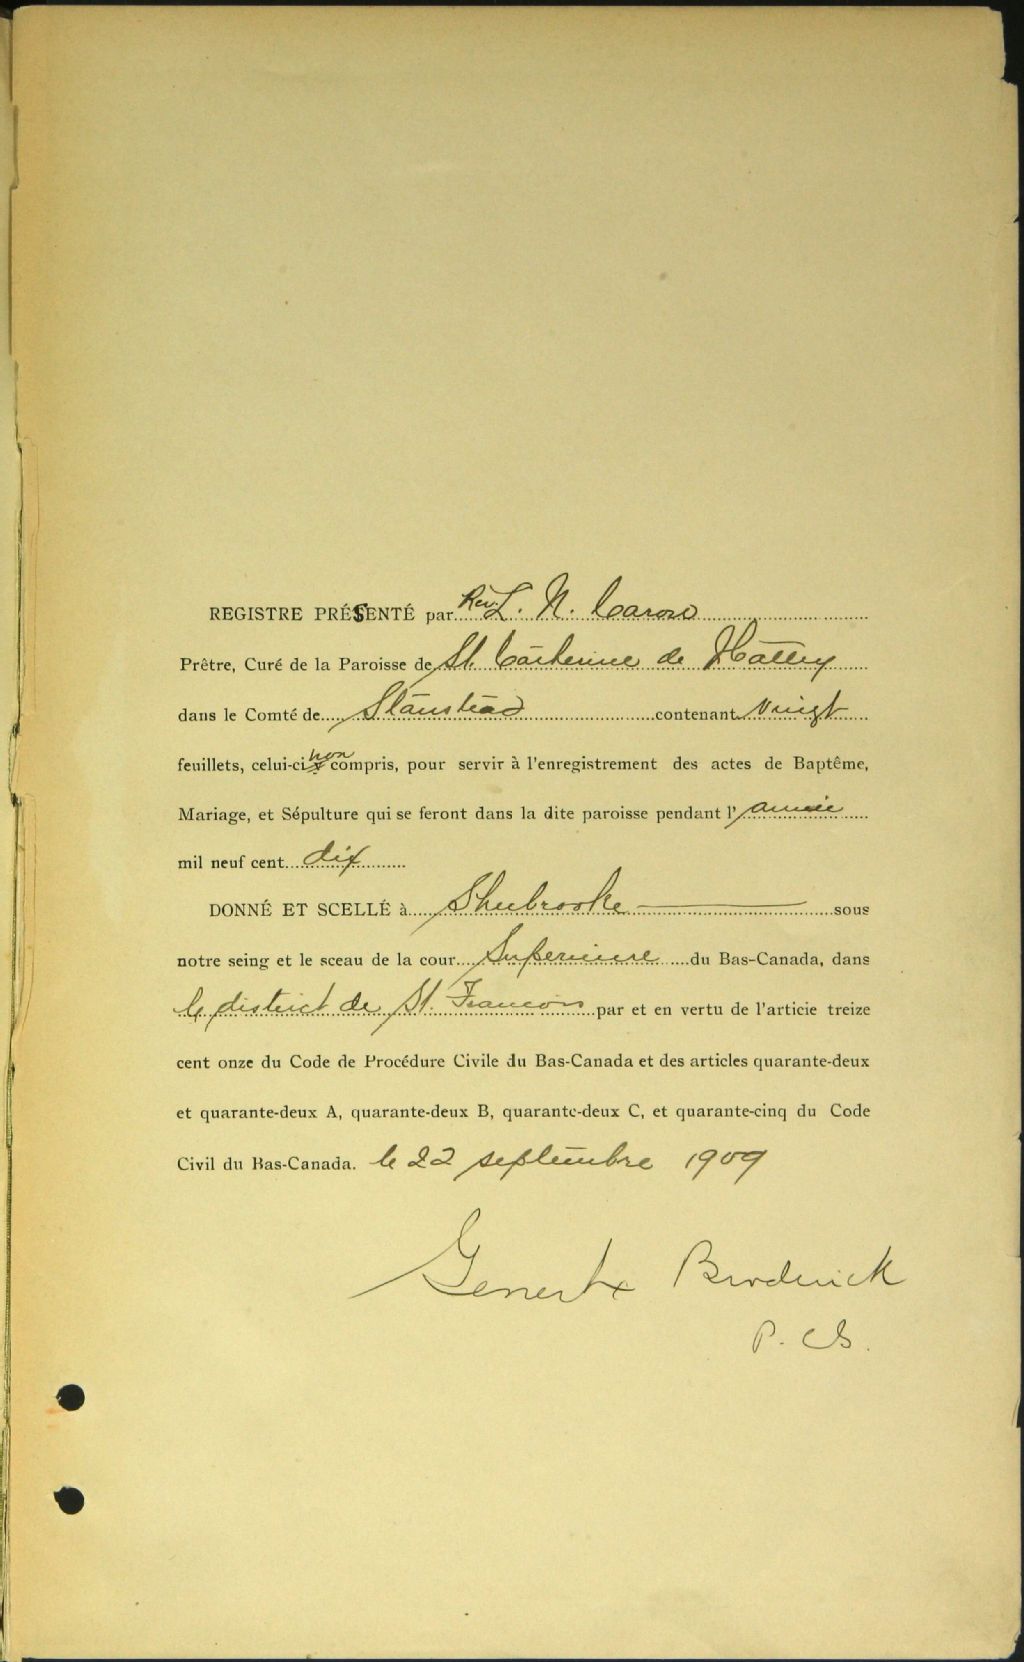 REGISTRE PRÉSENTÉ par Rev. L. N. Caron
Prêtre, Curé de la Paroisse de St. Catherine de Hatley
dans le Comté de Stanstead contenant vingt
feuillets, celui-ci non compris, pour servir à l'enregistrement des actes de Baptême,
Mariage, et Sépulture qui se feront dans la dite paroisse pendant l'année
mil neuf cent dix
DONNÉ ET SCELLÉ à Sherbrooke sous
notre seing et le sceau de la cour Superieure du Bas-Canada, dans
le district de St. Francois par et en vertu de l'articie treize
cent onze du Code de Procédure Civile du Bas-Canada et des articles quarante-deux
et quarante-deux A, quarante-deux B, quarante-deux C, et quarante-cinq du Code
Civil du Bas-Canada. le 22 septembre 1909
Broderick